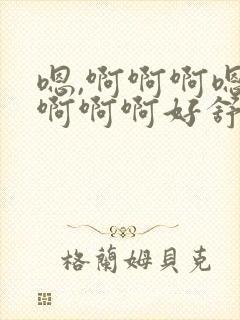 嗯,啊啊啊嗯
啊啊啊好舒
格蘭姆貝克